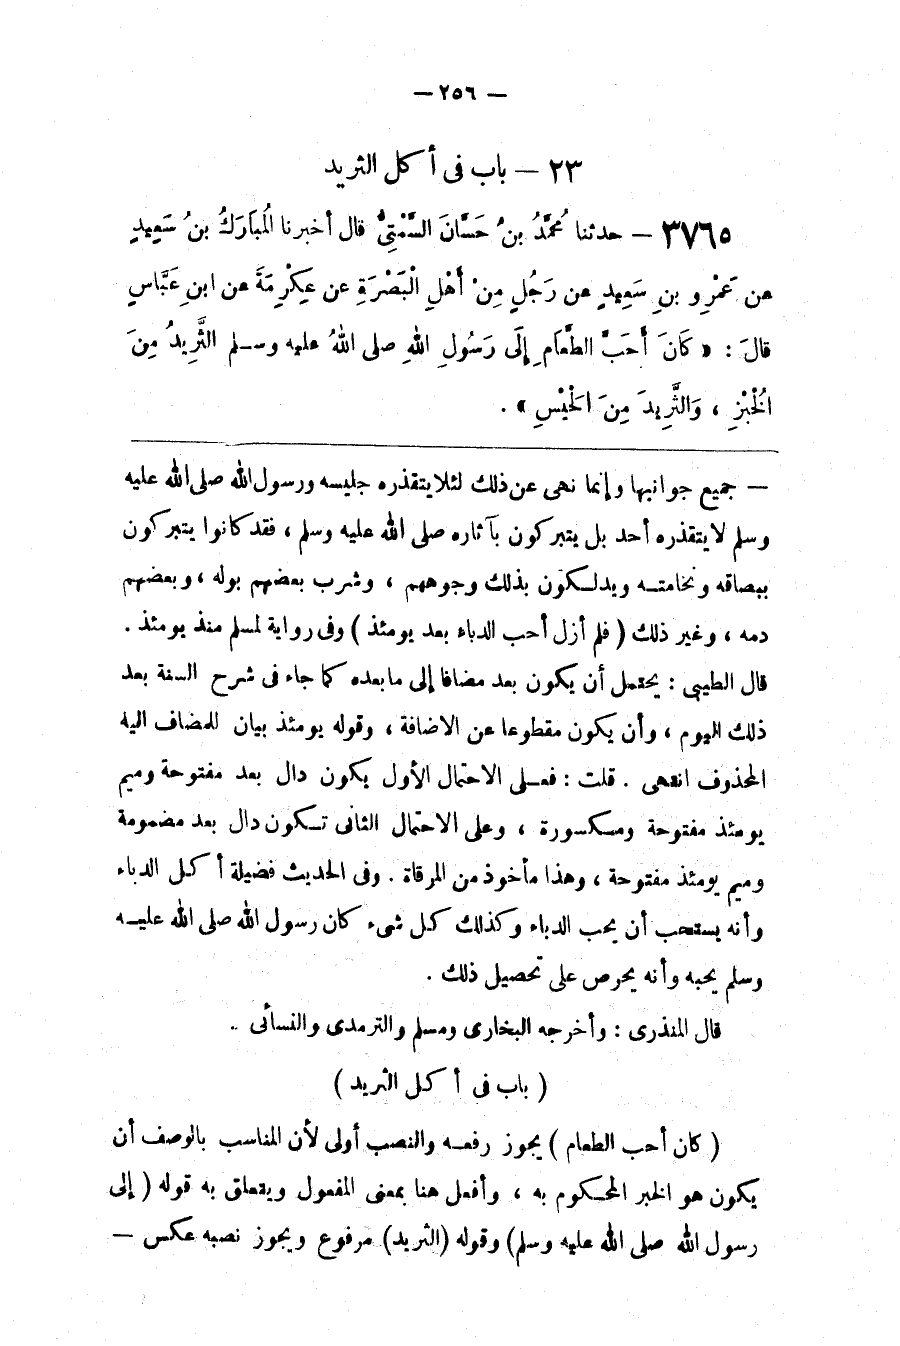 — ٢٥٦ —
٢٣ — باب فى أكل الثريد
٣٧٦٥ — حدثنا مُحمَّدُ بنُ حَسَّانَ السَّمْتِىُّ قال أخبرنا المُبَارَكُ بنُ سَعِيدٍ
عن عَمْرِو بنِ سَعِيدٍ عن رَجُلٍ مِنْ أَهْلِ الْبَصْرَةِ عن عِكْرِمَةَ عن ابنِ عَبَّاسٍ
قالَ : « كَانَ أَحَبَّ الطَّعَامِ إِلَى رَسُولِ اللهِ صلى اللهُ عليه وسلم الثَّرِيدُ مِنَ
الْخُبْزِ ، وَالثَّرِيدَ مِنَ الْحَيْسِ » .
— جميع جوانبها وإنما نهى عن ذلك لئلا يتقذره جليسه ورسول الله صلى الله عليه
وسلم لا يتقذره أحد بل يتبركون بآثاره صلى الله عليه وسلم ، فقد كانوا يتبركون
ببصاقه ونخامته ويدلكون بذلك وجوههم ، وشرب بعضهم بوله ، وبعضهم
دمه ، وغير ذلك ( فلم أزل أحب الدباء بعد يومئذ ) وفى رواية لمسلم منذ يومئذ .
قال الطيبى : يحتمل أن يكون بعد مضافا إلى ما بعده كما جاء فى شرح السنة بعد
ذلك اليوم ، وأن يكون مقطوعا عن الاضافة ، وقوله يومئذ بيان للمضاف اليه
المحذوف انتهى . قلت : فعلى الاحتمال الأول يكون دال بعد مفتوحة وميم
يومئذ مفتوحة ومكسورة ، وعلى الاحتمال الثانى تكون دال بعد مضمومة
وميم يومئذ مفتوحة ، وهذا مأخوذ من المرقاة . وفى الحديث فضيلة أكل الدباء
وأنه يستحب أن يحب الدباء وكذلك كل شىء كان رسول الله صلى الله عليه
وسلم يحبه وأنه يحرص على تحصيل ذلك .
قال المنذرى : وأخرجه البخارى ومسلم والترمذى والنسائى .
( باب فى أكل الثريد )
( كان أحب الطعام ) يجوز رفعه والنصب أولى لأن المناسب بالوصف أن
يكون هو الخبر المحكوم به ، وأفعل هنا بمعنى المفعول ويتعلق به قوله ( إلى
رسول الله صلى الله عليه وسلم) وقوله (الثريد) مرفوع ويجوز نصبه عكس —